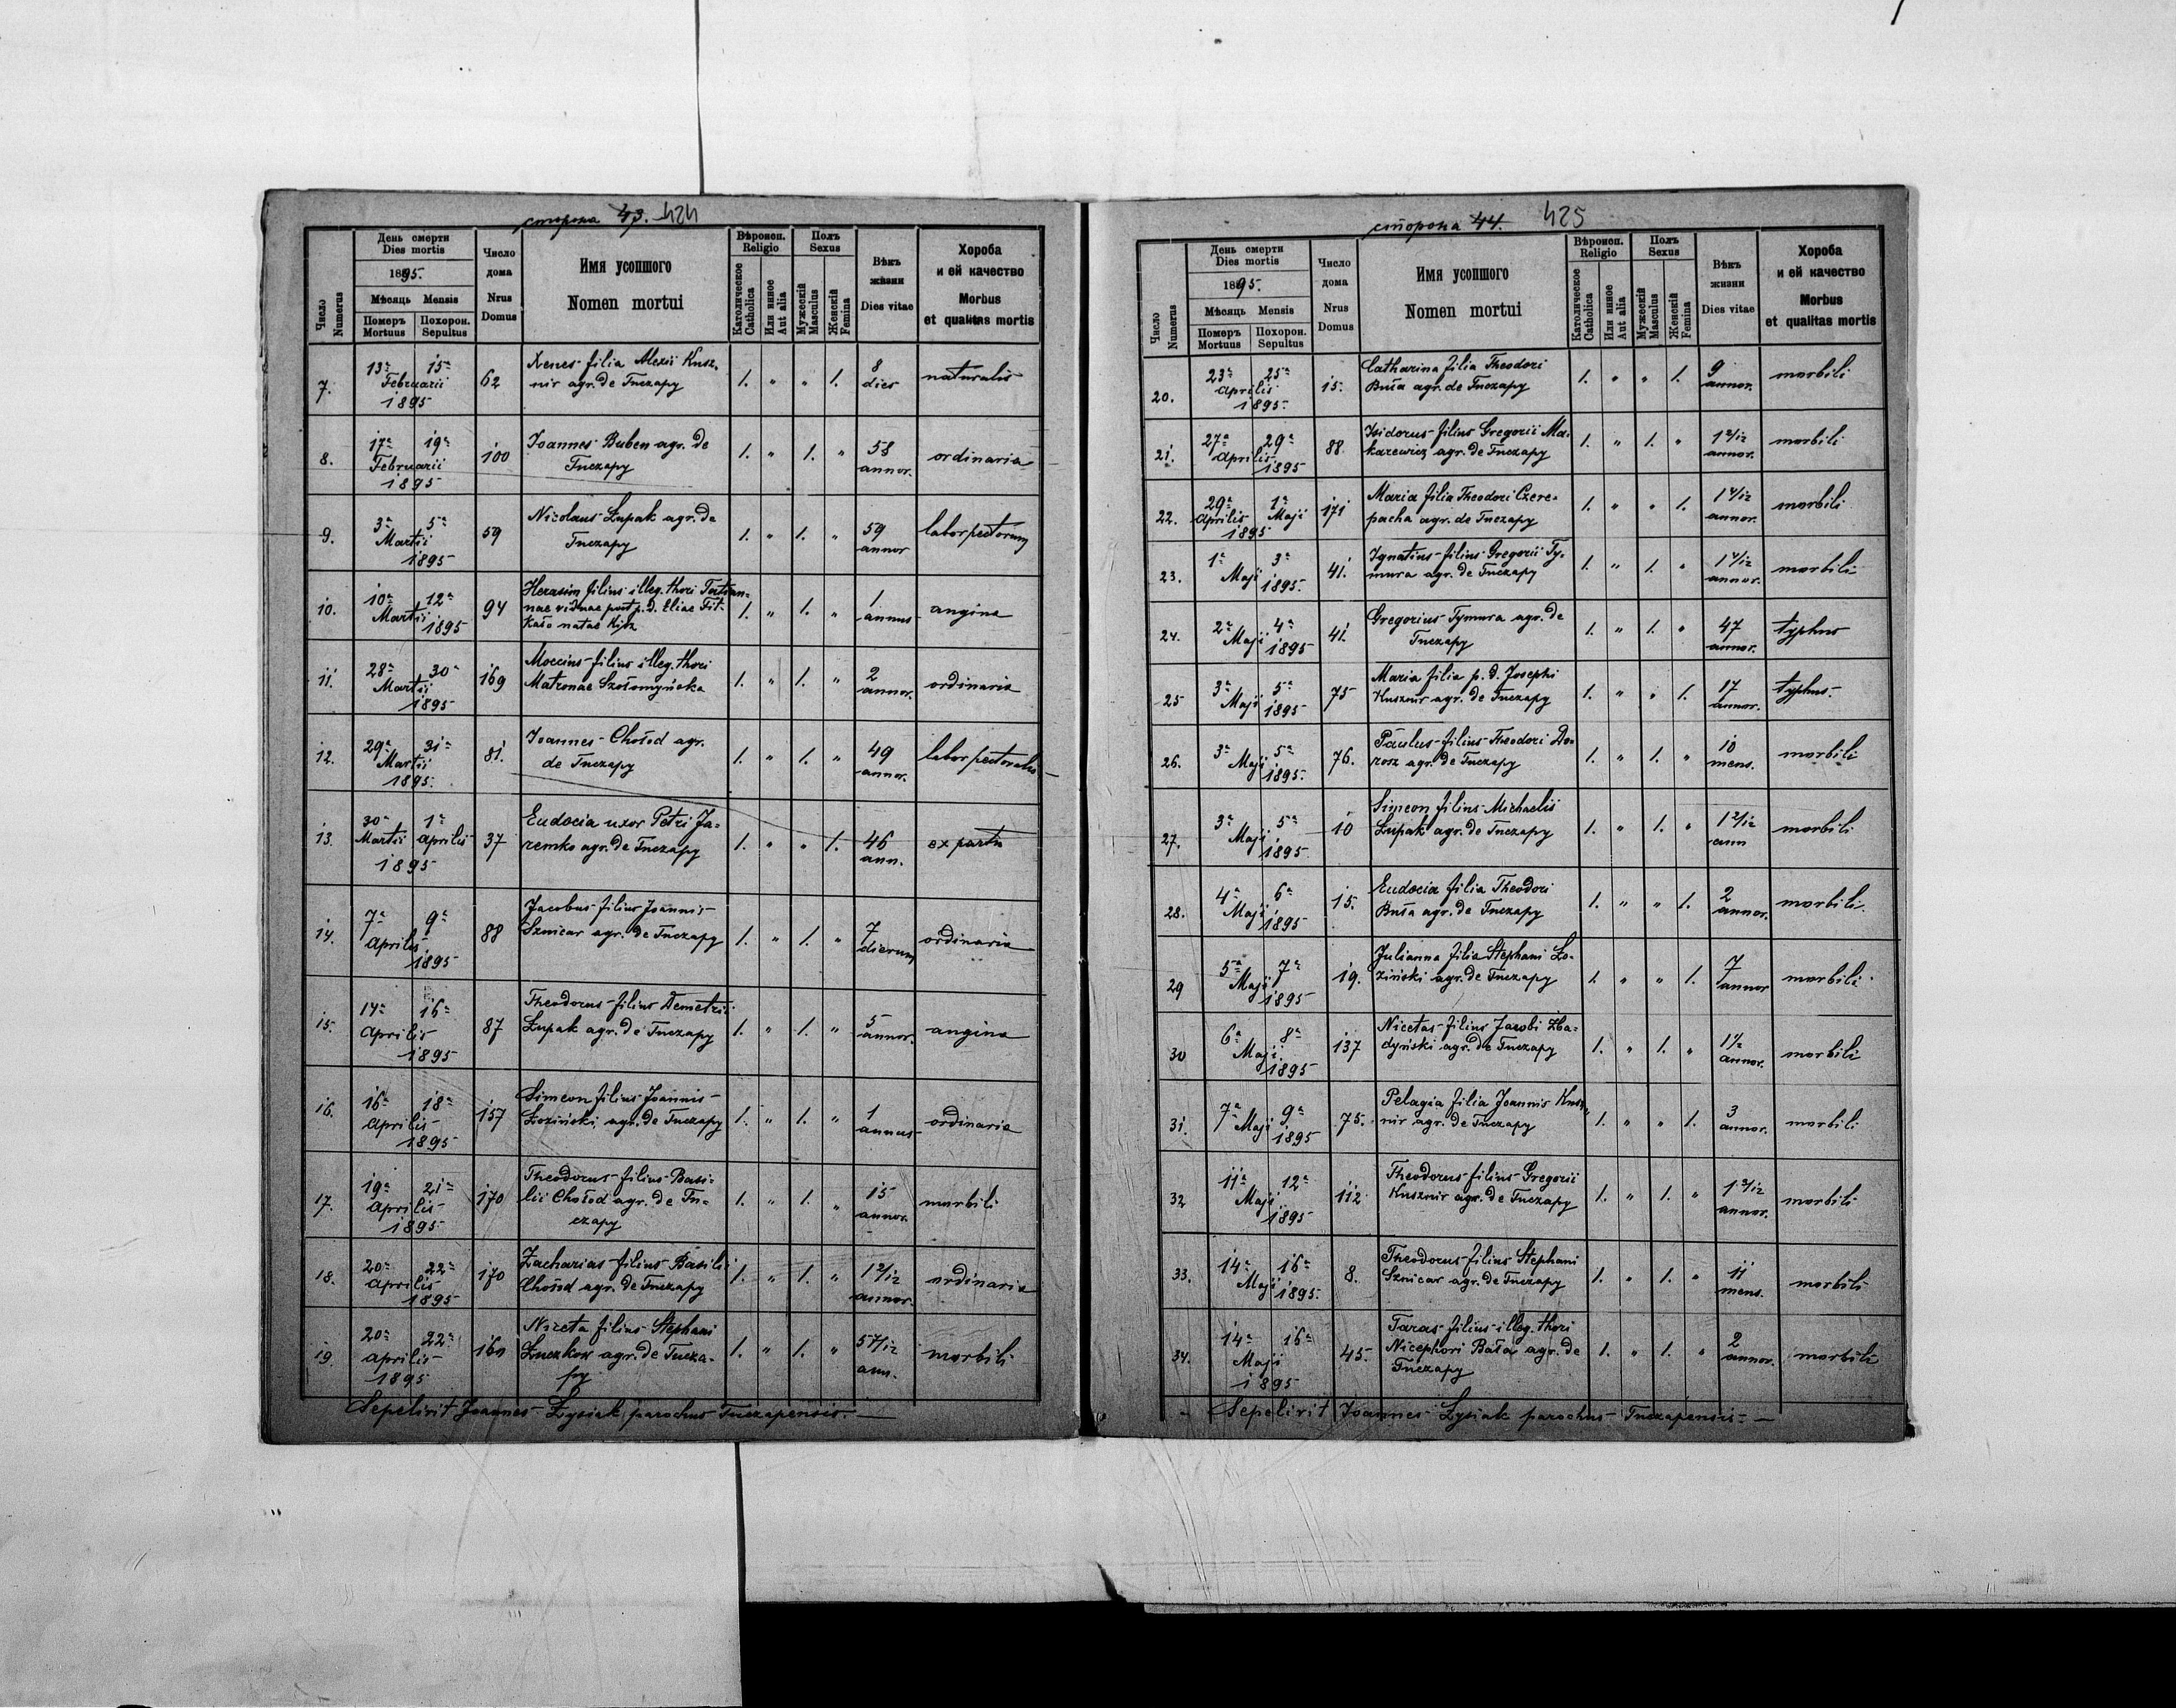 сторона 43. 424
Число
Numerus
День смерти
Dies mortis
1895.
Мѣсяць Mensis
Померъ Mortuus
Похорон. Sepultus
Число
дома
Nrus
Domus
Имя усопшого
Nomen mortui
Вѣроисп.
Religio
Католическое
Catholica
Или инное
Aut alia
Полъ
Sexus
Мужескій
Masculus
Женскій
Femina
Вѣкъ
жизни
Dies vitae
Хороба
и ей качество
Morbus
et qualitas mortis
7. 13a 15a Februarii 1895 62 Xenes filia Alexii Kusz-
nir agr. de Tuczapy 1. " " 1. 8 dies naturalis
8. 17a 19a Februarii 1895 100 Joannes Buben agr. de
Tuczapy 1. " 1. " 58 annor. ordinaria
9. 3a 5a Martii 1895 59 Nicolaus Łupak agr. de
Tuczapy 1. " 1. " 59 annor labor pectorum
10. 10a 12a Martii 1895 94 Herasim filius illeg. thori Tatian-
nae viduae post p. d. Eliae
natae 1. " 1. " 1 annus angina
11. 28a 30a Martii 1895 169 Moccius filius illeg. thori
Matronae Szołomyńska 1. " 1. " 2 annor. ordinaria
12. 29a 31a Martii 1895. 81. Joannes Chołod agr.
de Tuczapy 1. " 1. " 49 annor. labor pectoralis
13. 30a Martii 1a Aprilis 1895 37 Eudocia uxor Petri Ja-
remko agr. de Tuczapy 1. " " 1. 46 ann. ex partu
14. 7a 9a Aprilis 1895 88 Jacobus filius Joannis
Sznicar agr. de Tuczapy 1. " 1. " 7 dierum ordinaria
15. 14a 16a Aprilis 1895 87 Theodorus filius Demetrii
Łupak agr. de Tuczapy 1. " 1. " 5 annor. angina
16. 16a 18a Aprilis 1895 157 Simeon filius Joannis
Łoziński agr. de Tuczapy 1. " 1. " 1 annus ordinaria
17. 19a 21a Aprilis 1895 170 Theodorus filius Basi-
lii Chołod agr. de Tu-
czapy 1. " 1. " 15 annor. morbili
18. 20a 22a Aprilis 1895 170 Zacharias filius Basili
Chołod agr. de Tuczapy 1. " 1. " 1 2/12 annor. ordinaria
19. 20a 22a Aprilis 1895 160 Niceta filius Stephani
Łuczkow agr. de Tucza-
py 1. " 1. " 5 7/12 ann. morbili
Sepelivit Joannes Łysiak parochus Tuczapensis.
сторона 44. 425
Число
Numerus
День смерти
Dies mortis
1895.
Мѣсяць Mensis
Померъ Mortuus
Похорон. Sepultus
Число
дома
Nrus
Domus
Имя усопшого
Nomen mortui
Вѣроисп.
Religio
Католическое
Catholica
Или инное
Aut alia
Полъ
Sexus
Мужескій
Masculus
Женскій
Femina
Вѣкъ
жизни
Dies vitae
Хороба
и ей качество
Morbus
et qualitas mortis
20. 23a 25a Aprilis 1895. 15. Catharina filia Theodori
Buła agr. de Tuczapy 1. " " 1. 9 annor. morbili
21. 27a 29a Aprilis 1895 88. Isidorus filius Gregorii Ma-
karewicz agr. de Tuczapy 1. " 1. " 1 2/12 annor. morbili
22. 29a Aprilis 1a Maji 1895 171 Maria filia Theodori Czere-
pacha agr. de Tuczapy 1. " " 1. 1 4/12 annor. morbili
23. 1a 3a Maji 1895. 41. Ignatius filius Gregorii Ty-
mura agr. de Tuczapy 1. " 1. " 1 4/12 annor. morbili
24. 2a 4a Maji 1895 41. Gregorius Tymura agr. de
Tuczapy 1. " 1. " 47 annor. typhus
25 3a 5a Maji 1895 75 Maria filia p. d. Josephi
Kusznir agr. de Tuczapy 1. " " 1. 17 annor. typhus
26. 3a 5a Maji 1895. 76. Paulus filius Theodori Do-
rosz agr. de Tuczapy 1. " 1. " 10 mens. morbili
27. 3a 5a Maji 1895 10 Simeon filius Michaelis
Łupak agr. de Tuczapy 1. " 1. " 1 2/12 ann morbili
28. 4a 6a Maji 1895 15. Eudocia filia Theodori
Buła agr. de Tuczapy 1. " " 1. 2 annor. morbili.
29 5a 7a Maji 1895 19. Julianna filia Stephani Ło-
ziński agr. de Tuczapy 1. " " 1. 7 annor morbili
30 6a 8a Maji 1895 137 Nicetas filius Jacobi Zba-
dyński agr. de Tuczapy 1. " 1. " 1 1/2 annor. morbili
31. 7a 9a Maji 1895 75. Pelagia filia Joannis Kusz-
nir agr. de Tuczapy 1. " " 1. 3 annor. morbili
32 11a 12a Maji 1895 112 Theodorus filius Gregorii
Kusznir agr. de Tuczapy 1. " 1. " annor. morbili
33. 14a 16a Maji 1895. 8. Theodorus filius Stephani
Sznicar agr. de Tuczapy 1. " 1. " 11 mens. morbili
34. 14a 16a Maji 1895 45. Taras filius illeg. thori
Nicephori Bała agr. de
Tuczapy 1. " 1. " 2 annor. morbili
Sepelivit Joannes Łysiak parochus Tuczapensis